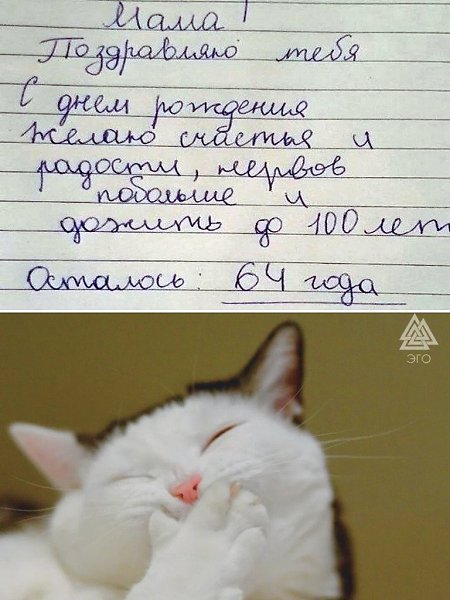 Мама!
Поздравляю тебя
С днем рождения
желаю счастья и
радости, нервов
побольше и
дожить до 100 лет
Осталось: 64 года
ЭГО